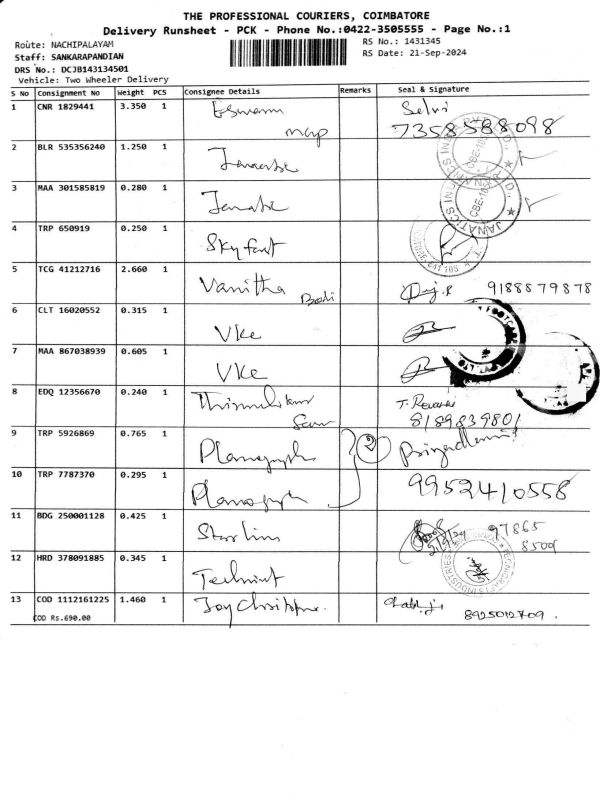 THE PROFESSIONAL COURIERS, COIMBATORE
Delivery Runsheet - PCK - Phone No.:0422-3505555 - Page No.:1
Route: NACHIPALAYAM
RS No.: 1431345
Staff: SANKARAPANDIAN
RS Date: 21-Sep-2024
DRS No.: DCJB143134501
Vehicle: Two Wheeler Delivery
S No Consignment No Weight PCS Consignee Details Remarks Seal & Signature
1 CNR 1829441 3.350 1 Eswaran Selvi
7358588098
2 BLR 535356240 1.250 1
3 MAA 301585819 0.280 1
4 TRP 650919 0.250 1 Sky fast
5 TCG 41212716 2.660 1 Vanitha 9188879878
6 CLT 16020552 0.315 1 Vke
7 MAA 867038939 0.605 1 Vke
8 EDQ 12356670 0.240 1 T. Revathi
8189839801
9 TRP 5926869 0.765 1 2
10 TRP 7787370 0.295 1 9952410558
11 BDG 250001128 0.425 1 Starlins 97865
8500
12 HRD 378091885 0.345 1
13 COD 1112161225 1.460 1 Joy
COD Rs.690.00 8925012709.